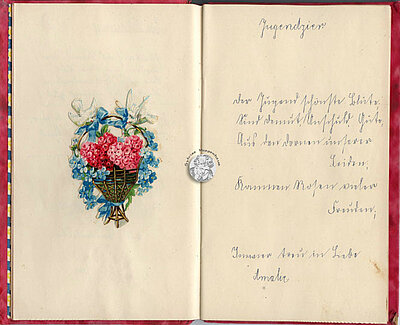 Jugendzier
Der Jugend schönste Blüte
Sind Demut, Unschuld, Güte,
Auf den Dornen unserer
Leiden,
Rosen vieler
Freuden,
Immer treu in Liebe
Amalie